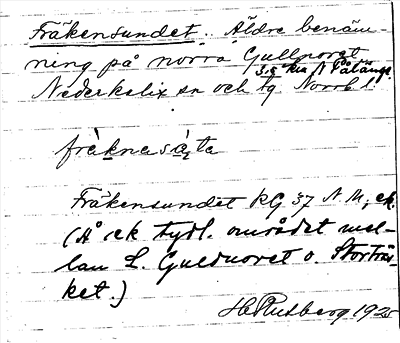 Fräkensundet. Äldre benäm-
ning på norra Gullnoret
3.5 km N Pålänge
Nederkalix sn och tg Norrb. l.
fräknasạta
Fräkensundet kG 37 N M, ek.
(Å ek tydl. området mel-
lan L. Guldnoret o. Storträs-
ket.)
H Rutberg 1925